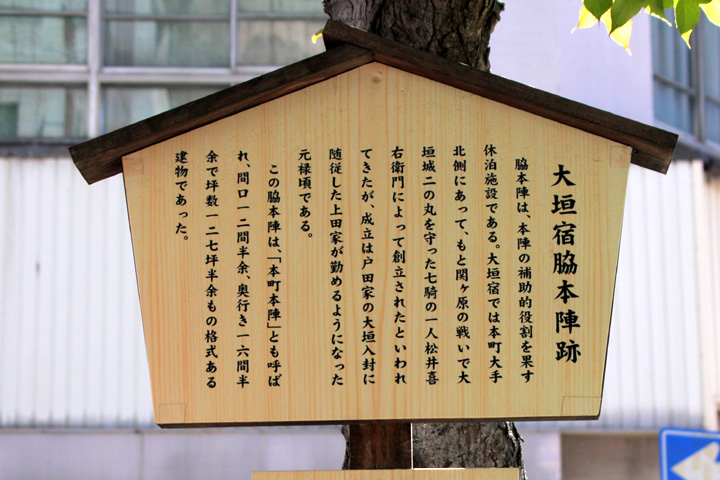 大垣宿脇本陣跡
脇本陣は、本陣の補助的役割を果す
休泊施設である。大垣宿では本町大手
北側にあって、もと関ヶ原の戦いで大
垣城二の丸を守った七騎の一人松井喜
右衛門によって創立されたといわれ
てきたが、成立は戸田家の大垣入封に
随従した上田家が勤めるようになった
元禄頃である。
この脇本陣は、「本町本陣」とも呼ば
れ、間口一二間半余、奥行き一六間半
余で坪数一二七坪半余もの格式ある
建物であった。